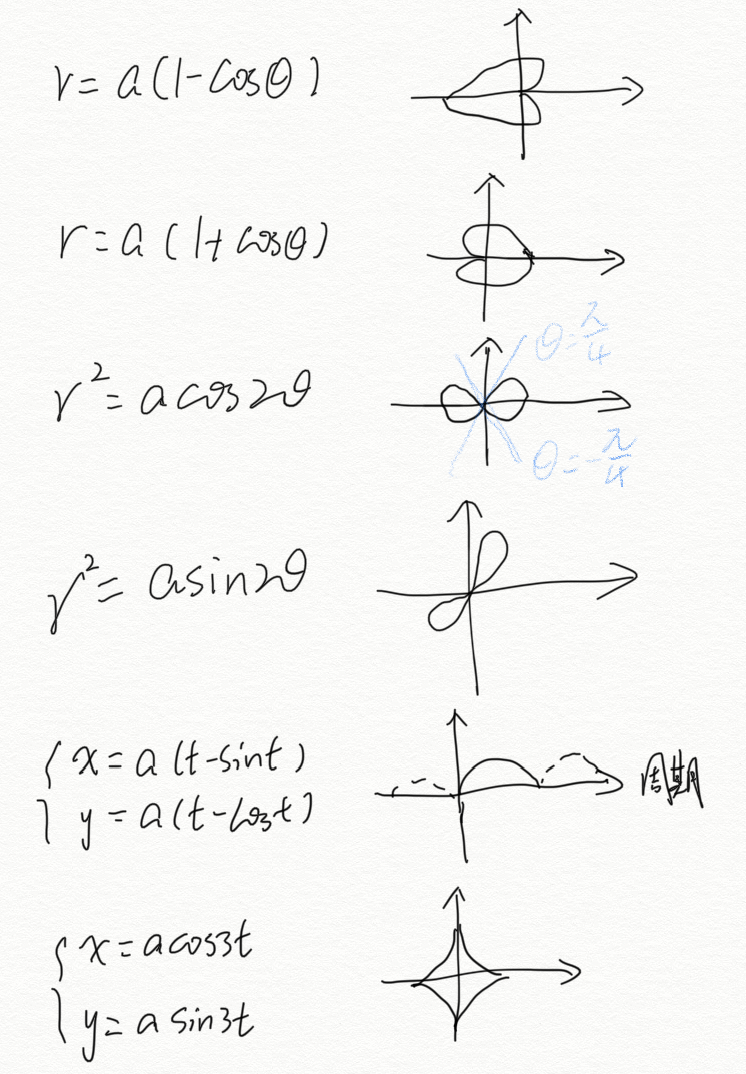 r = a(1-cosθ)
r = a(1+cosθ)
θ=π/4
r² = acos2θ
θ=-π/4
r² = asin2θ
{ x = a(t-sint)
周期
y = a(t-cost)
{ x = acos3t
y = asin3t